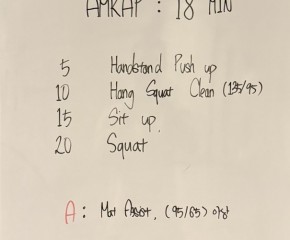 AMRAP : 18 MIN
5 Handstand Push up
10 Hang Squat Clean (135/95)
15 Sit up
20 Squat
A : Mat Assist, (95/65) 이하